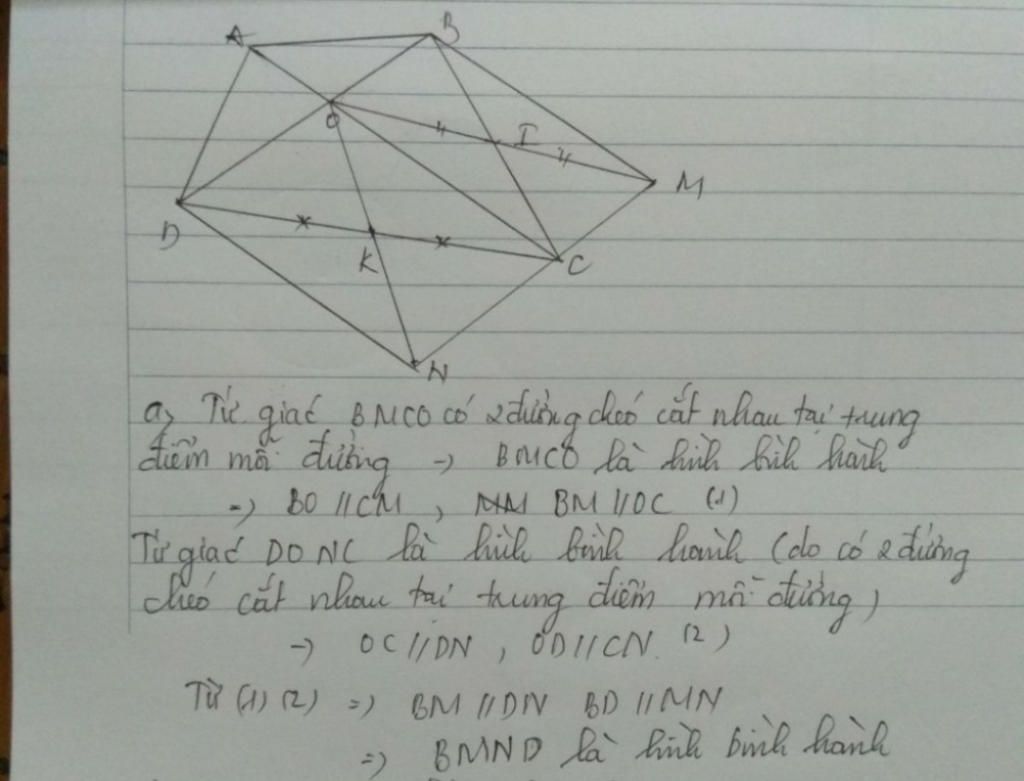 A B
O I
M
D K C
N
a, Tứ giác BMCO có 2 đường chéo cắt nhau tại trung
điểm mỗi đường → BMCO là hình bình hành
=> BO // CM , BM // OC (1)
Tứ giác DONC là hình bình hành (do có 2 đường
chéo cắt nhau tại trung điểm mỗi đường)
→ OC // DN , OD // CN (2)
Từ (1) (2) => BM // DN BD // MN
=> BMND là hình bình hành